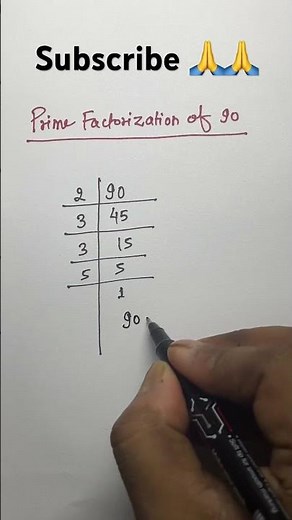 Subscribe 🙏🙏
Prime Factorization of 90
2 90
3 45
3 15
5 5
1
90